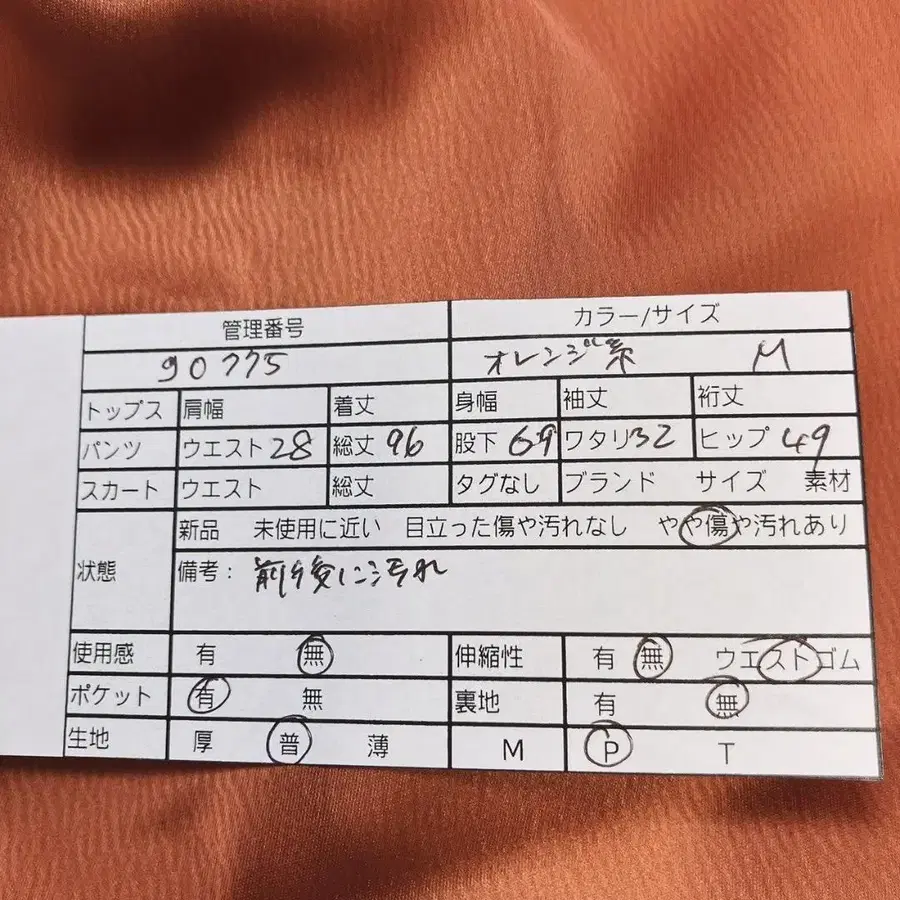 管理番号 カラー/サイズ
90775 オレンジ系 M
トップス 肩幅 着丈 身幅 袖丈 裄丈
パンツ ウエスト 28 総丈 96 股下 69 ワタリ 32 ヒップ 49
スカート ウエスト 総丈 タグなし ブランド サイズ 素材
状態 新品 未使用に近い 目立った傷や汚れなし やや傷や汚れあり
備考: 前後に汚れ
使用感 有 無 伸縮性 有 無 ウエストゴム
ポケット 有 無 裏地 有 無
生地 厚 普 薄 M P T